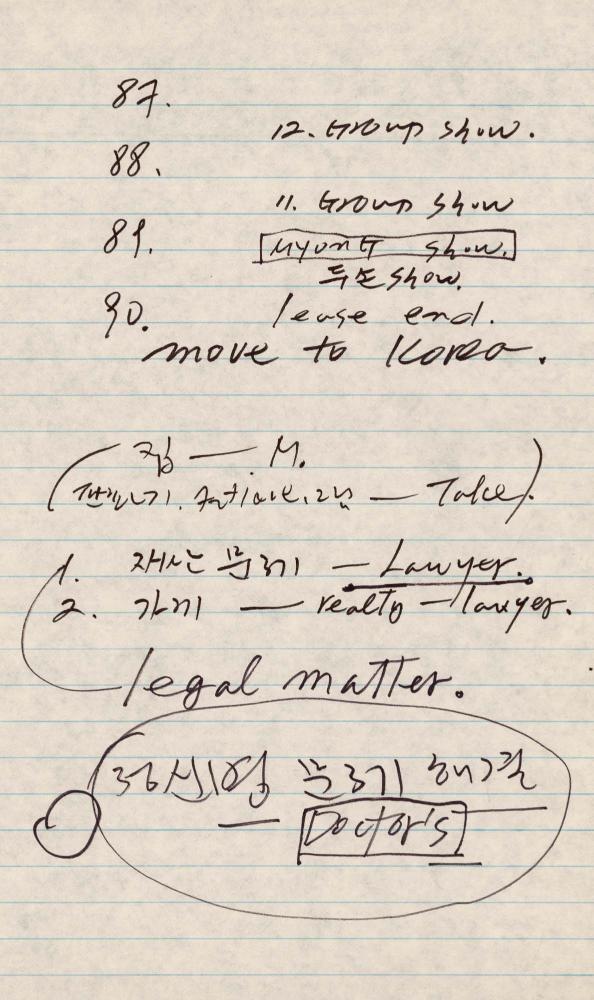 87.
12. Group show.
88.
11. Group show
89.
MYONG show.
두손 show.
90. lease end.
move to Korea.
집 — M.
— Take
1. 재산 문제 — Lawyer.
2. 가게 — realty — lawyer.
legal matter.
정신병 문제 해결
Doctor's